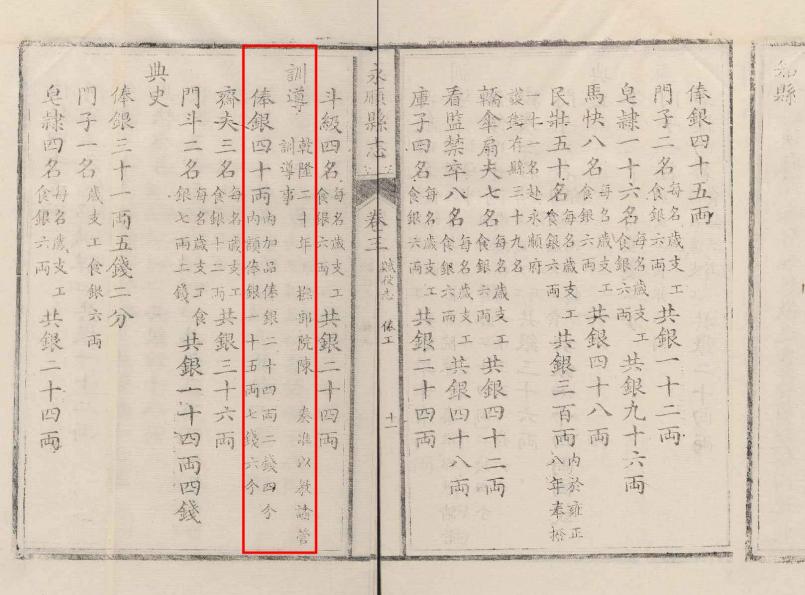 知縣
俸銀四十五両
門子二名每名歲支工食銀六両共銀一十二両
皂隷一十六名每名歲支工食銀六両共銀九十六両
馬快八名每名歲支工食銀六両共銀四十八両
民壯五十名每名歲支工食銀六両共銀三百両內於雍正八年奉撥
一十一名赴永順府
設徃存縣三十九名
轎傘扇夫七名每名歲支工食銀六両共銀四十二両
看監禁卒八名每名歲支工食銀六両共銀四十八両
庫子四名每名歲支工食銀六両共銀二十四両
永順縣志 卷三 賦役志 俸工 十一
斗級四名每名歲支工食銀六両共銀二十四両
訓導乾隆二十年 撫部院陳 奏准以教諭管訓導事
俸銀四十両內加品俸銀二十四両二錢四分內額俸銀一十五両七錢六分
齋夫三名每名歲支工食銀十二両共銀三十六両
門斗二名每名歲支工食銀七両二錢共銀一十四両四錢
典史
俸銀三十一両五錢二分
門子一名歲支工食銀六両
皂隷四名每名歲支工食銀六両共銀二十四両